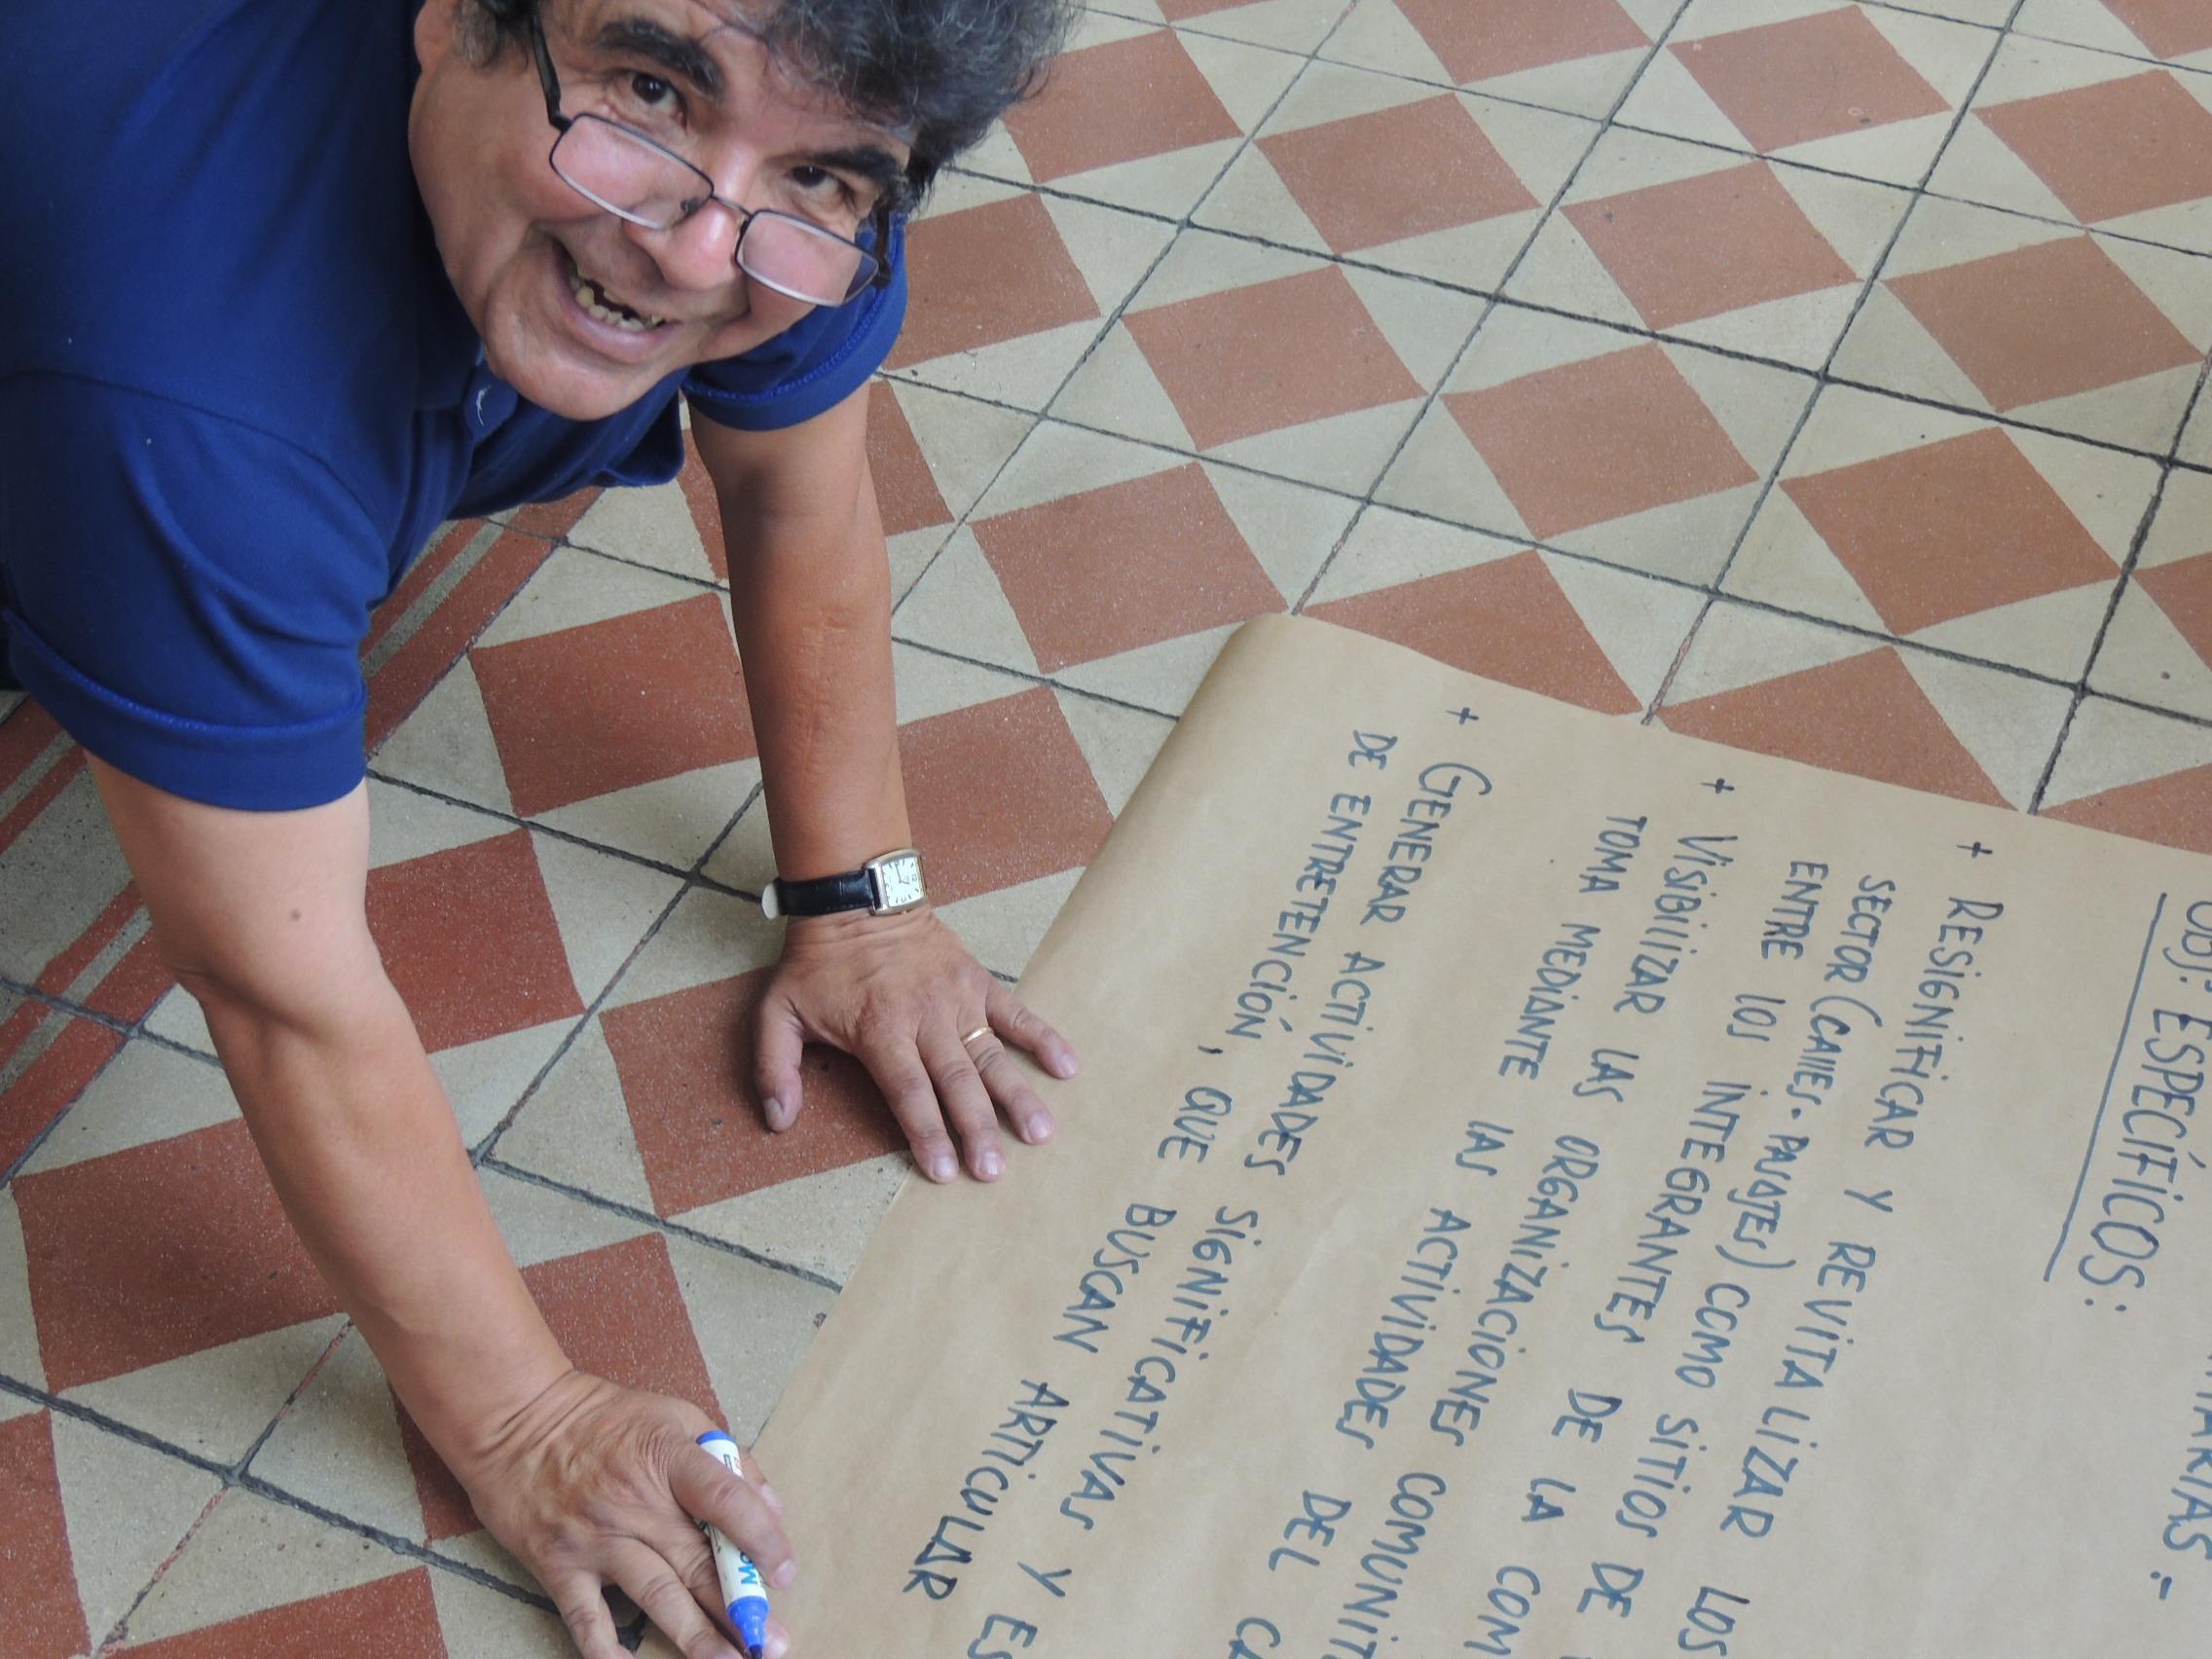 OBJ: ESPÉCIFICOS:
+ RESIGNIFICAR Y REVITALIZAR LOS
SECTOR (CALLES. PASAJES) COMO SITIOS DE
ENTRE LOS INTEGRANTES DE LA COM
+ VISIBILIZAR LAS ORGANIZACIONES COMUNIT
TOMA MEDIANTE LAS ACTIVIDADES DEL CA
+ GENERAR ACTIVIDADES SIGNIFICATIVAS Y ES
DE ENTRETENCIÓN, QUE BUSCAN ARTICULAR